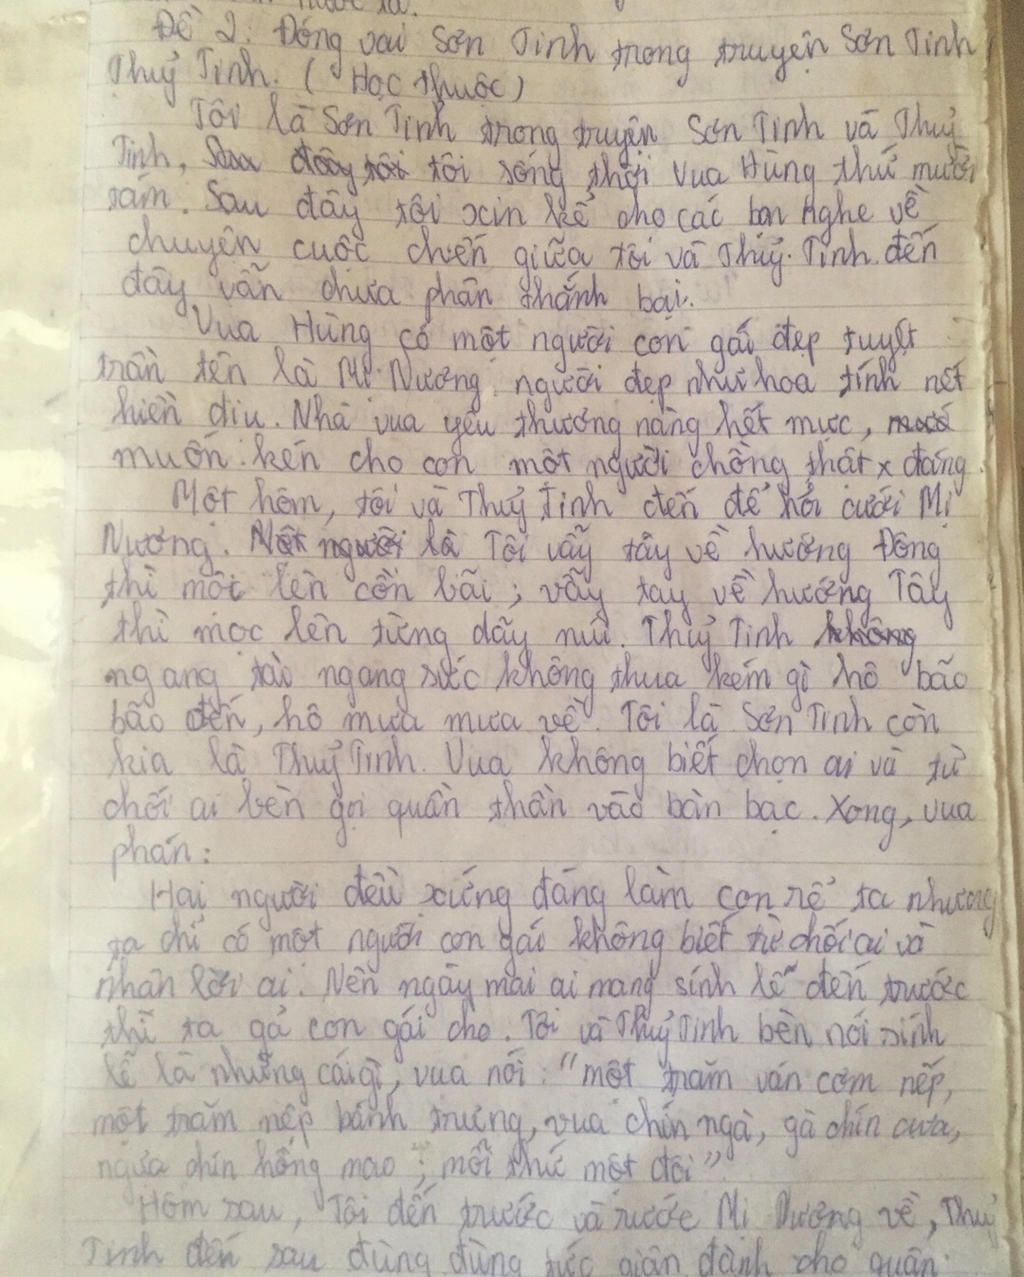 Đề 2: Đóng vai Sơn Tinh trong truyện Sơn Tinh,
Thuỷ Tinh. ( Học thuộc)
Tôi là Sơn Tinh trong truyện Sơn Tinh và Thuỷ
Tinh, tôi sống thời Vua Hùng thứ mười
tám. Sau đây tôi xin kể cho các bạn nghe về
chuyện cuộc chiến giữa tôi và Thuỷ Tinh đến
đây vẫn chưa phân thắnh bại.
Vua Hùng có một người con gái đẹp tuyệt
trần tên là Mị Nương, người đẹp như hoa tính nết
hiền dịu. Nhà vua yêu thương nàng hết mực,
muốn kén cho con một người chồng thật x đáng.
Một hôm, tôi và Thuỷ Tinh đến để hỏi cưới Mị
Nương. Tôi vẫy tây về hướng Đông
thì mọc lên cồn bãi; vẫy tay về hướng Tây
thì mọc lên từng dãy núi. Thuỷ Tinh
ngang tài ngang sức không thua kém gì hô bão
bão đến, hô mưa mưa về. Tôi là Sơn Tinh còn
kia là Thuỷ Tinh. Vua không biết chọn ai và từ
chối ai bèn gọi quần thần vào bàn bạc. Xong, vua
phán:
Hai người đều xứng đáng làm con rể ta nhương
ta chỉ có một người con gái không biết từ chối ai và
nhận lời ai. Nên ngày mai ai mang sính lễ đến trước
thì ta gả con gái cho. Tôi và Thuỷ Tinh bèn nói sính
lễ là những cái gì, vua nói: "một trăm ván cơm nếp,
một trăm nệp bánh trưng, vua chín ngà, gà chín cưa,
ngựa chín hồng mao; mỗi thứ một đôi"
Hôm sau, Tôi đến trước và rước Mị Nương về, Thuỷ
Tinh đến sau đùng đùng tức giận đành cho quân